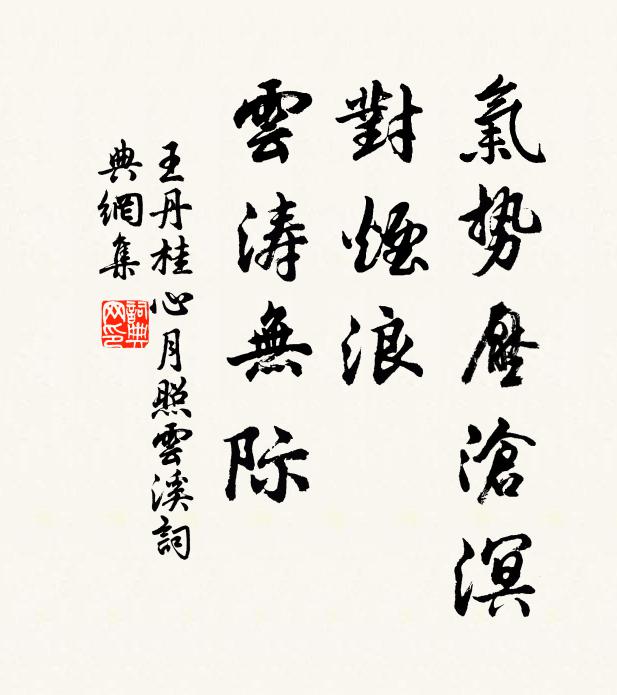 氣势壓滄溟
對煙浪
雲涛無际
王丹桂心月照雲溪詞
典網集
詞典
网印